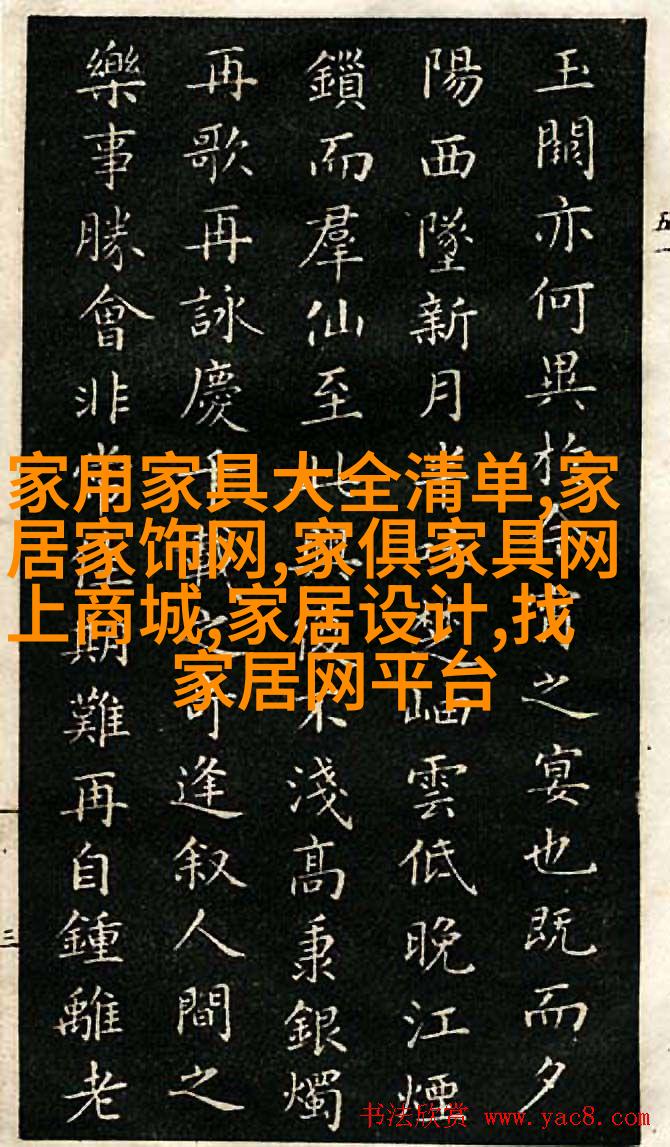 玉闕亦何異於之宴也既而夕
陽西墜新月楚岫雲低晚江煙
鎖而羣仙至此興復不淺高秉銀燭
再歌再詠慶千載之可逢叙人間之
樂事勝會非常佳期難再自鍾離老
家用家具大全清单,家
居家饰网,家俱家具网
上商城,家居设计,找
家居网平台
五
三
书法欣赏 www.yac8.com